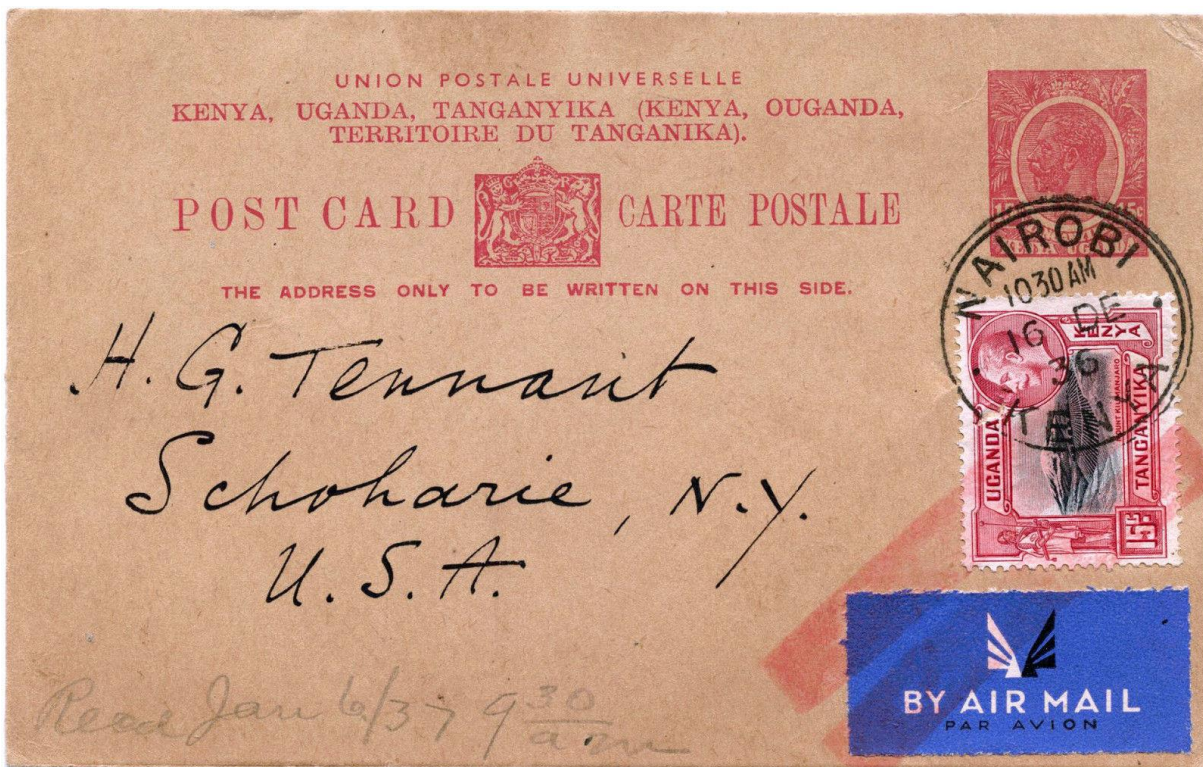 UNION POSTALE UNIVERSELLE
KENYA, UGANDA, TANGANYIKA (KENYA, OUGANDA,
TERRITOIRE DU TANGANIKA).
POST CARD CARTE POSTALE
THE ADDRESS ONLY TO BE WRITTEN ON THIS SIDE.
NAIROBI
1030AM
16 DE
36
KENYA
KENYA
UGANDA
TANGANYIKA
MOUNT KILIMANJARO
15c
H. G. Tennant
Schoharie, N.Y.
U.S.A.
BY AIR MAIL
PAR AVION
Recd Jan 6/37 9 30
a.m